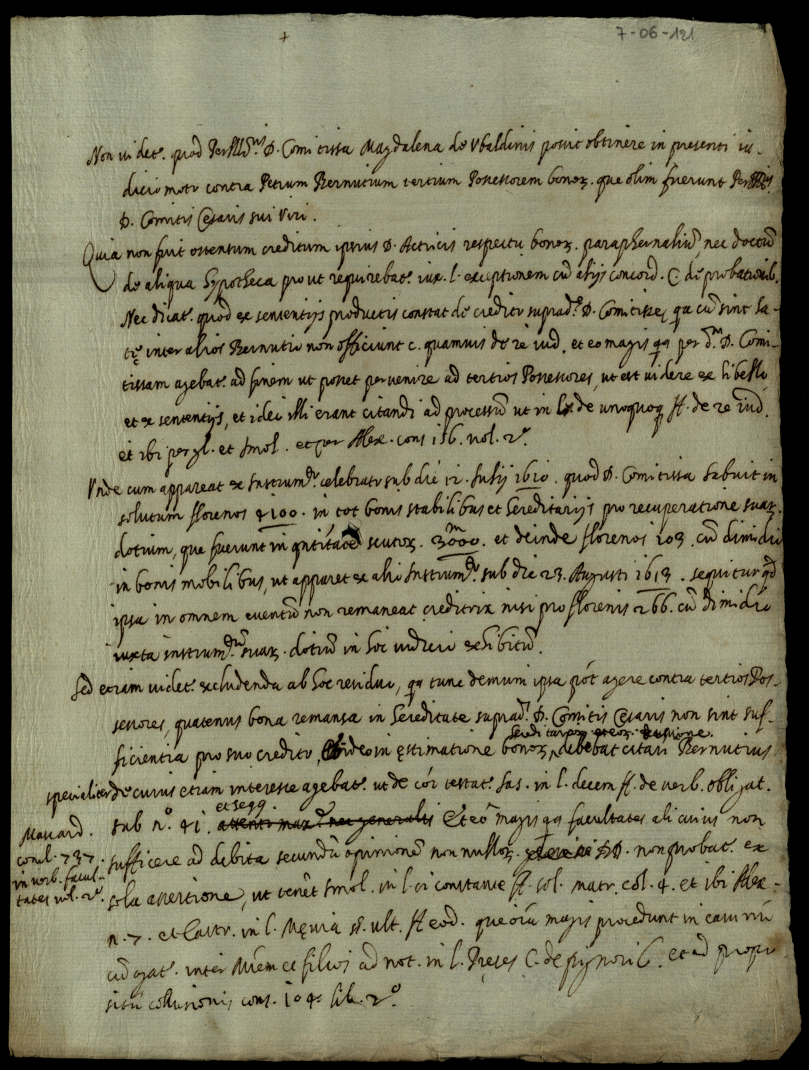 7-06-121
Non videt. quod PerIll.is D. Comitissa Magdalena de Ubaldinis possit obtinere in presenti iu-
dicio moto contra Petrum Bernutium tertium Possessorem bonor. que olim fuerunt PerIllis
D. Comitis Cesaris sui Viri.
Quia non fuit ostensum creditum ipsius D. Actricis respectu bonor. paraphernaliũ, nec docetũ
de aliqua Hypotheca prout requirebat. iux. l. exceptionem cũ alijs concord. C. de probationib.
Nec dicat. quod ex sententijs productis constat de credito suprad.e D. Comitisse, qa cũ sint la-
tę inter alios Bernutio non officiunt c. quamvis de re iud. et eo magis qa per d.m D. Comi-
tissam agebat. ad finem ut posset pervenire ad tertios Possessores, ut est videre ex libello
et ex sententijs, et ideo illi erant citandi ad processũ ut in l. de unoquoq ff. de re iud.
et ibi per gl. et Imol. et per Alex. cons. 156. vol. 2.º
Unde cum appareat ex Instrum.to celebrato sub die 12. Julij 1610. quod D. Comitissa habuit in
solutum florenos 4100. in tot bonis stabilibus et hereditarijs pro recuperatione suar.
dotium, que fuerunt in qntitate scutor. 3000. et deinde florenos 103. cũ dimidio
in bonis mobilibus, ut apparet ex alio Instrum.to sub die 23. Augusti 1613. sequitur qd
ipsa in omnem eventũ non remaneat creditrix nisi pro florenis 266. cũ dimidio
iuxta instrum.tũ suar. dotiũ in hoc iudicio exhibitũ.
Sed etiam videt. excludenda ab hoc residuo, qa tunc demum ipsa pót agere contra tertios Pos-
sessores, quatenus bona remansa in hereditate suprad.i D. Comitis Cesaris non sint suf-
ficientia pro suo credito, ideo in ęstimatione bonor. debebat citari Bernutius
specialiter de cuius etiam interesse agebat. ut de cór testat. Jas. in l. decem ff. de verb. obligat.
sub n.º 41. et seqq. Et eo magis qa facultates alicuius non
Mascard.
concl. 737.
in verb. facul-
tates vol. 2.º
sufficere ad debita secundũ opinionẽ non nullor. DD. non probat. ex
sola assertione, ut tenet Imol. in l. si constante ff. sol. matr. col. 4. et ibi Alex.
n. 7. et Castr. in l. Mevia §. ult. ff. eod. que oĩa magis procedunt in casu nrõ
cũ agat. inter Mrẽm et filios ad not. in l. Preses C. de pignorib. et ad propo-
sitũ collusionis cons. 104. lib. 2.º